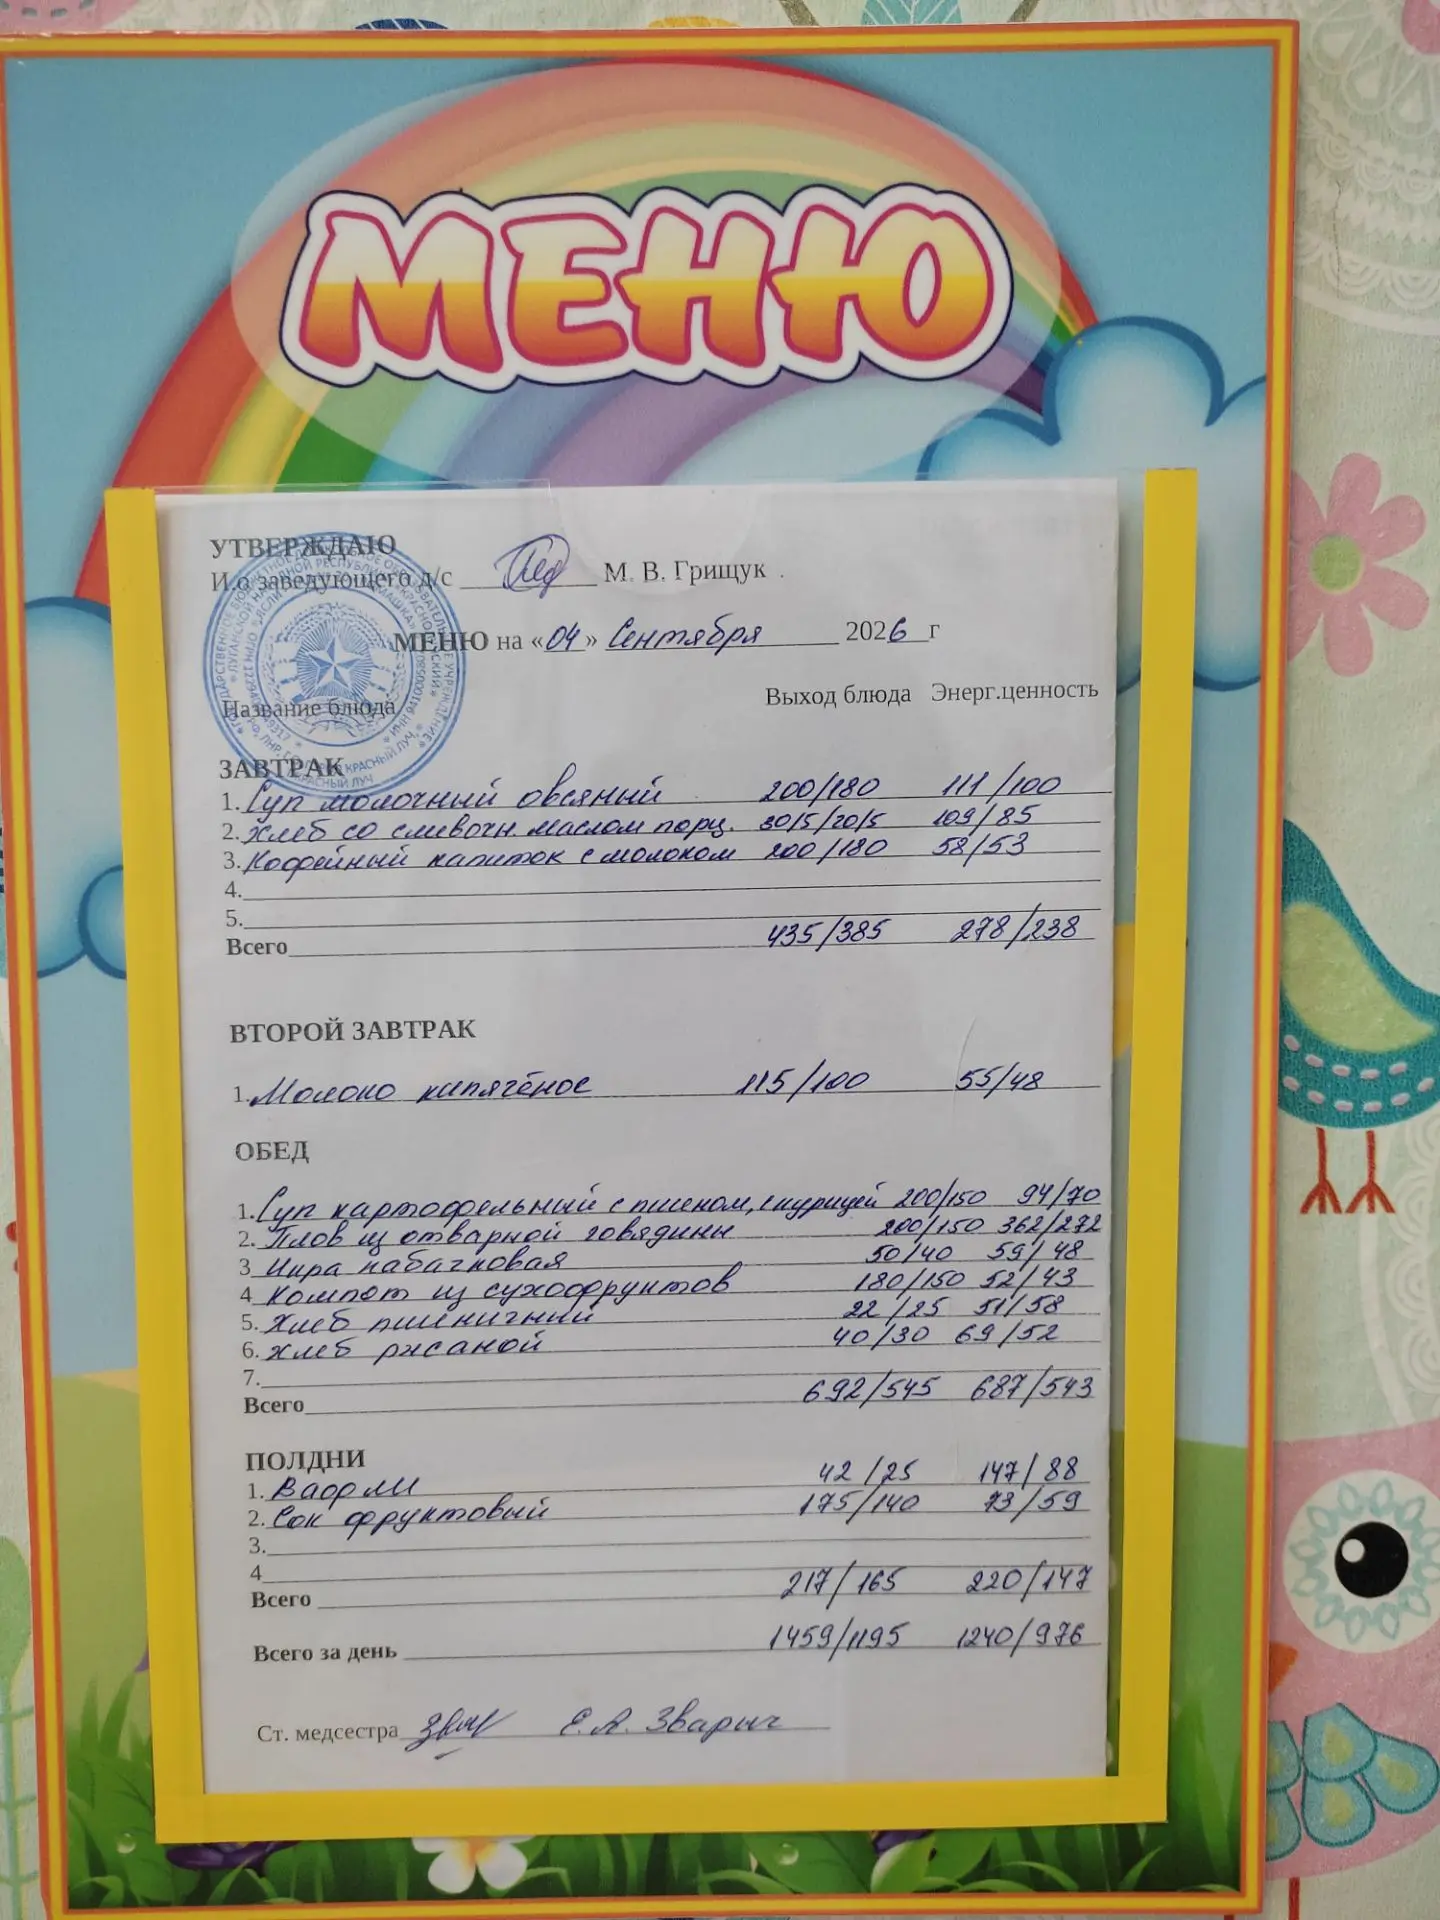 МЕНЮ
УТВЕРЖДАЮ
И.о заведующего д/с М. В. Грищук
МЕНЮ на «04» Сентября 2026 г
Название блюда Выход блюда Энерг.ценность
ЗАВТРАК
1. Суп молочный овсяный 200/180 111/100
2. Хлеб со сливочн маслом порц. 30/5/20/5 109/85
3. Кофейный напиток с молоком 200/180 58/53
4.
5.
Всего 435/385 278/238
ВТОРОЙ ЗАВТРАК
1. Молоко кипячёное 115/100 55/48
ОБЕД
1. Суп картофельный с пшеном, с курицей 200/150 94/70
2. Плов из отварной говядины 200/150 362/272
3 Икра кабачковая 50/40 59/48
4 Компот из сухофруктов 180/150 52/43
5. Хлеб пшеничный 22/25 51/58
6. Хлеб ржаной 40/30 69/52
7.
Всего 692/545 687/543
ПОЛДНИ
1. Вафли 42/25 147/88
2. Сок фруктовый 175/140 73/59
3.
4
Всего 217/165 220/147
Всего за день 1459/1195 1240/976
Ст. медсестра Е.А. Зварич